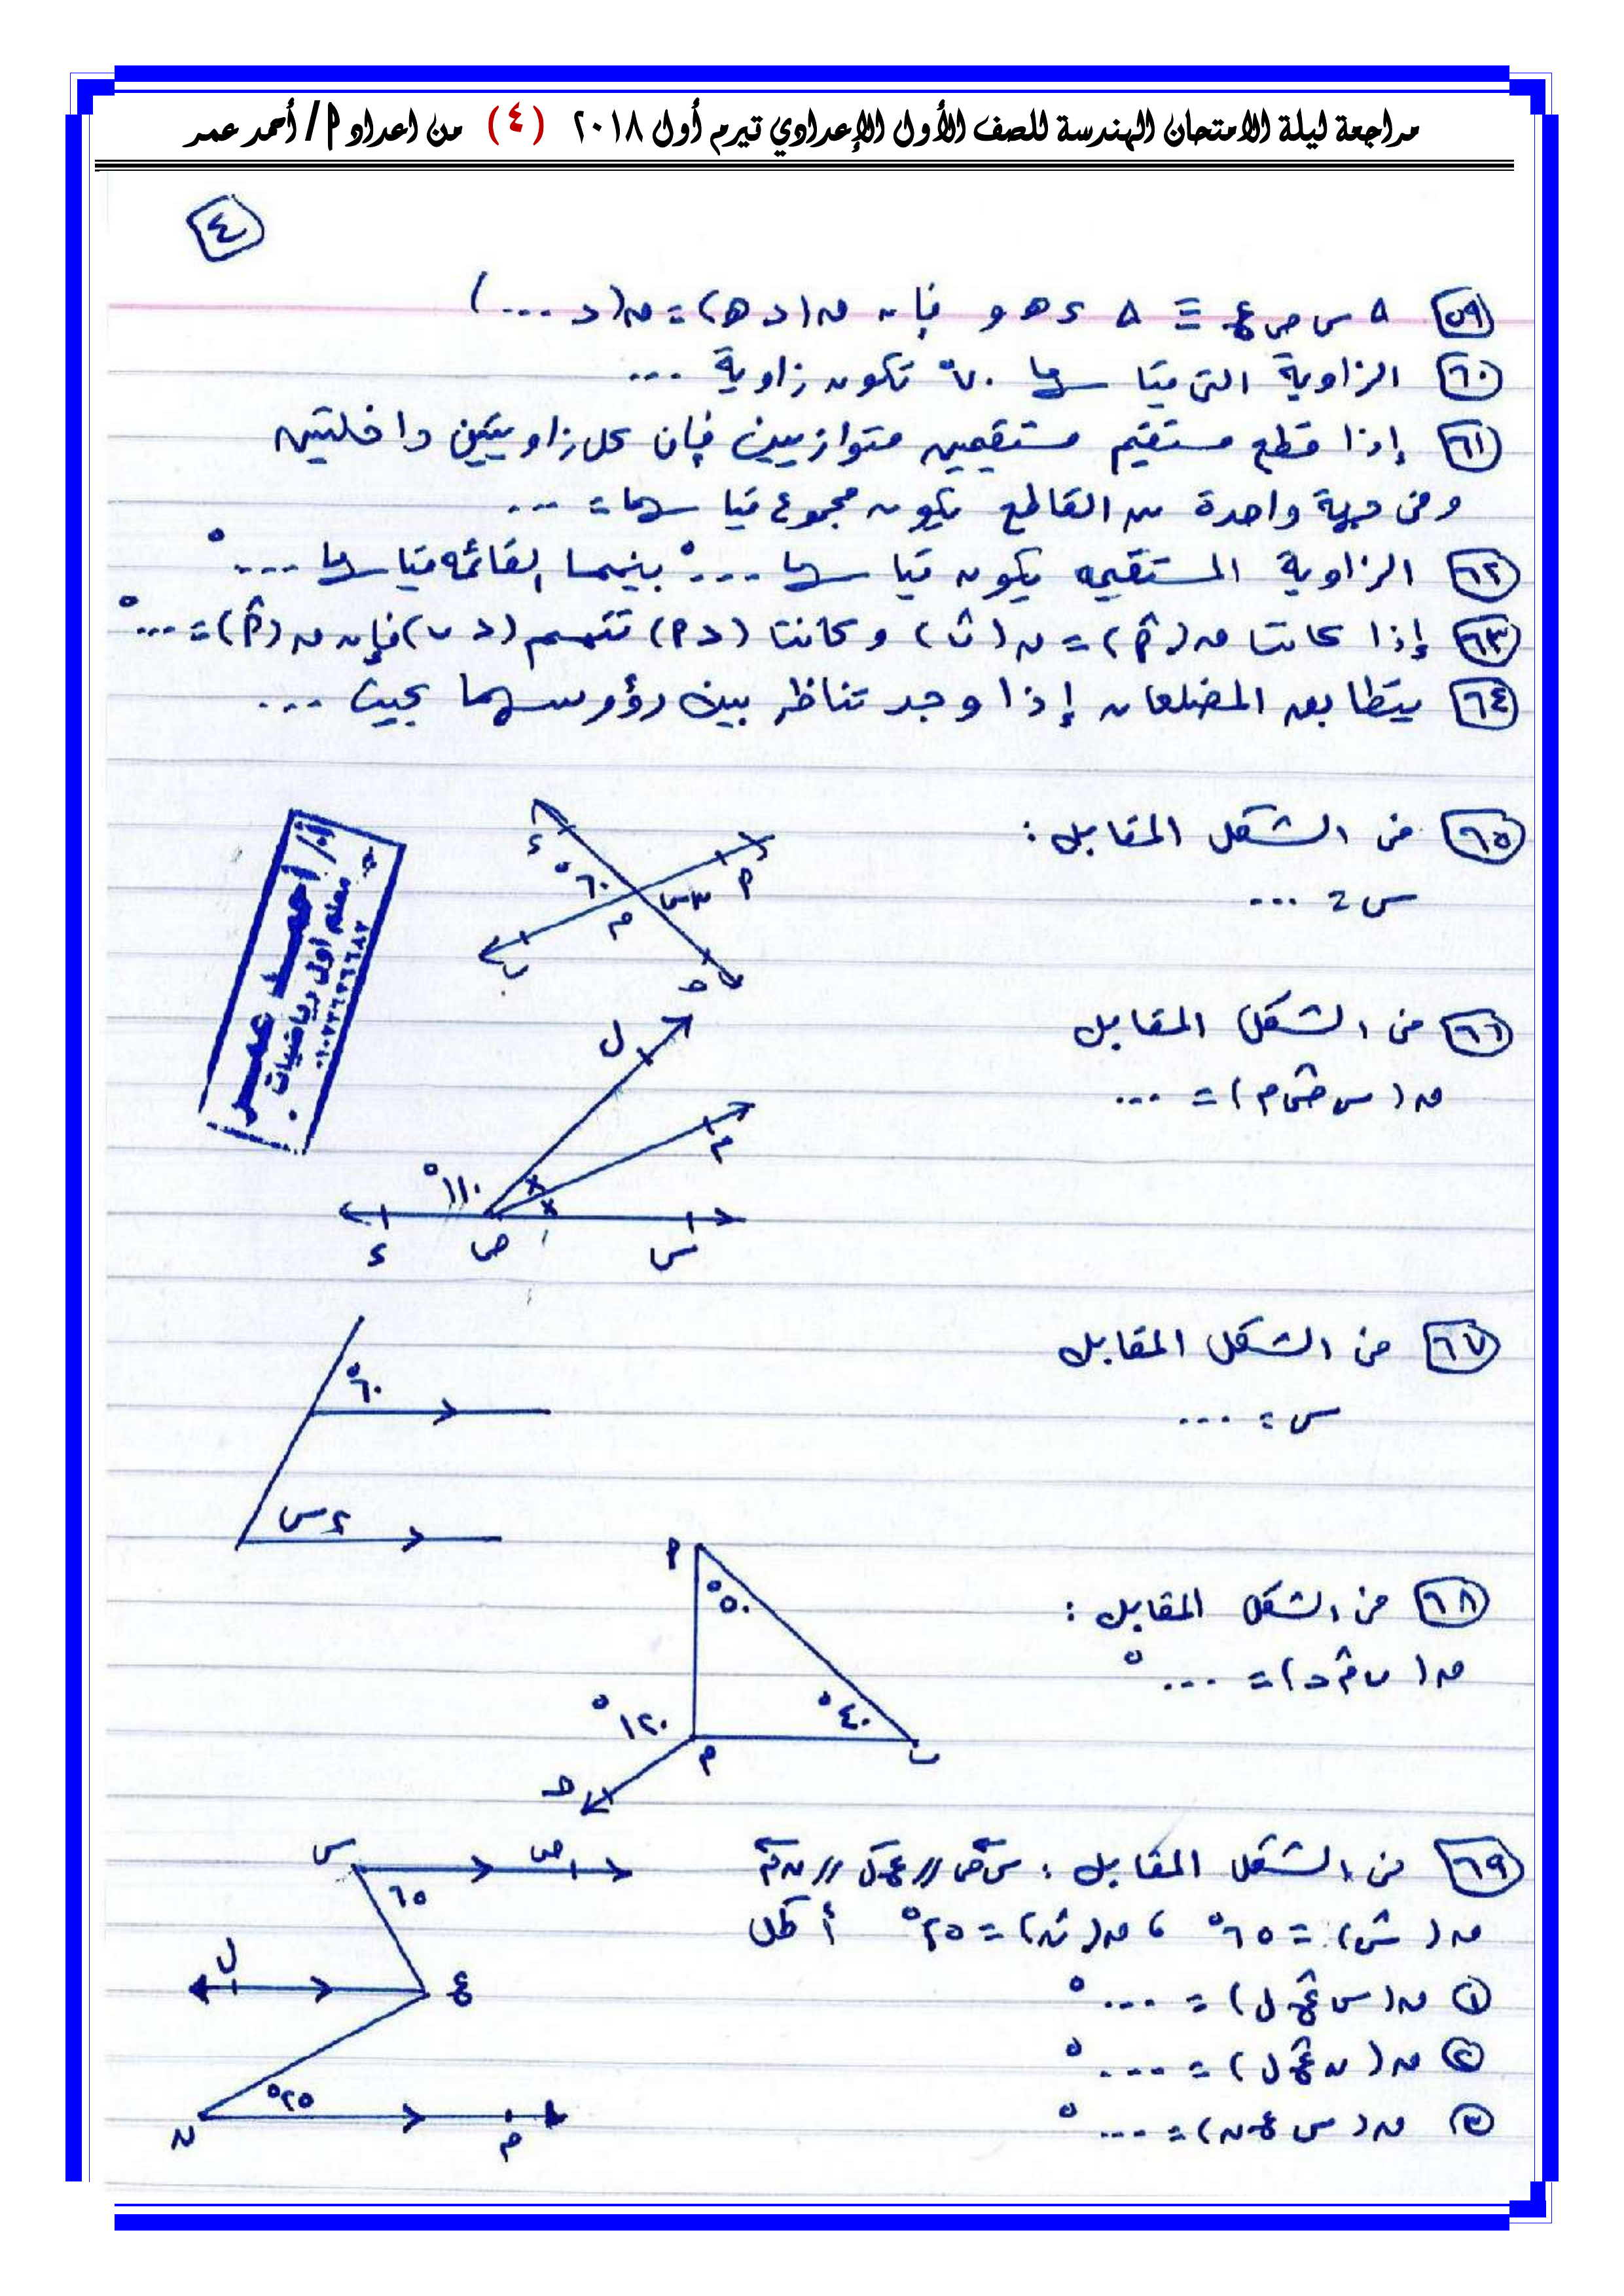 مراجعة ليلة الامتحان الهندسة للصف الأول الإعدادي تيرم أول ٢٠١٨ (٤) من اعداد ا / أحمد عمر
٤
٥٩ Δ س ص ع ≡ Δ د ھ و فإن ق(د ھ) = ق(د ...)
٦٠ الزاوية التى قياسها ٧٠° تكون زاوية ...
٦١ إذا قطع مستقيم مستقيمين متوازيين فإن كل زاويتين داخلتين
وفى جهة واحدة من القاطع يكون مجموع قياسهما = ...
٦٢ الزاوية المستقيمه يكون قياسها ...° بينما القائمه قياسها ...°
٦٣ إذا كانت ق(أ) = ق(ب) و كانت (د أ) تتمم (د ب) فإن ق(أ) = ...°
٦٤ يتطابق المضلعان إذا وجد تناظر بين رؤوسهما بحيث ...
٦٥ فى الشكل المقابل :
س = ...
د
٦٠°
٣س
أ
م
ب
ج
أ/ أحمد عمر
معلم أول رياضيات
٦٦ فى الشكل المقابل
ق(س ص م) = ...
ل
م
١١٠°
×
×
د
ص
س
٦٧ فى الشكل المقابل
س = ...
٦٠°
٢س
٦٨ فى الشكل المقابل :
ق(ب م ج) = ...°
أ
٥٠°
٤٠°
١٢٠°
م
ب
ج
٦٩ فى الشكل المقابل : س ص // ع ل // ن م
ق(س) = ٦٥° ، ق(ن) = ٢٥° أكمل
١ ق(س ع ل) = ...°
٢ ق(ن ع ل) = ...°
٣ ق(س ع ن) = ...°
س
ص
٦٥
ل
ع
٢٥°
ن
م